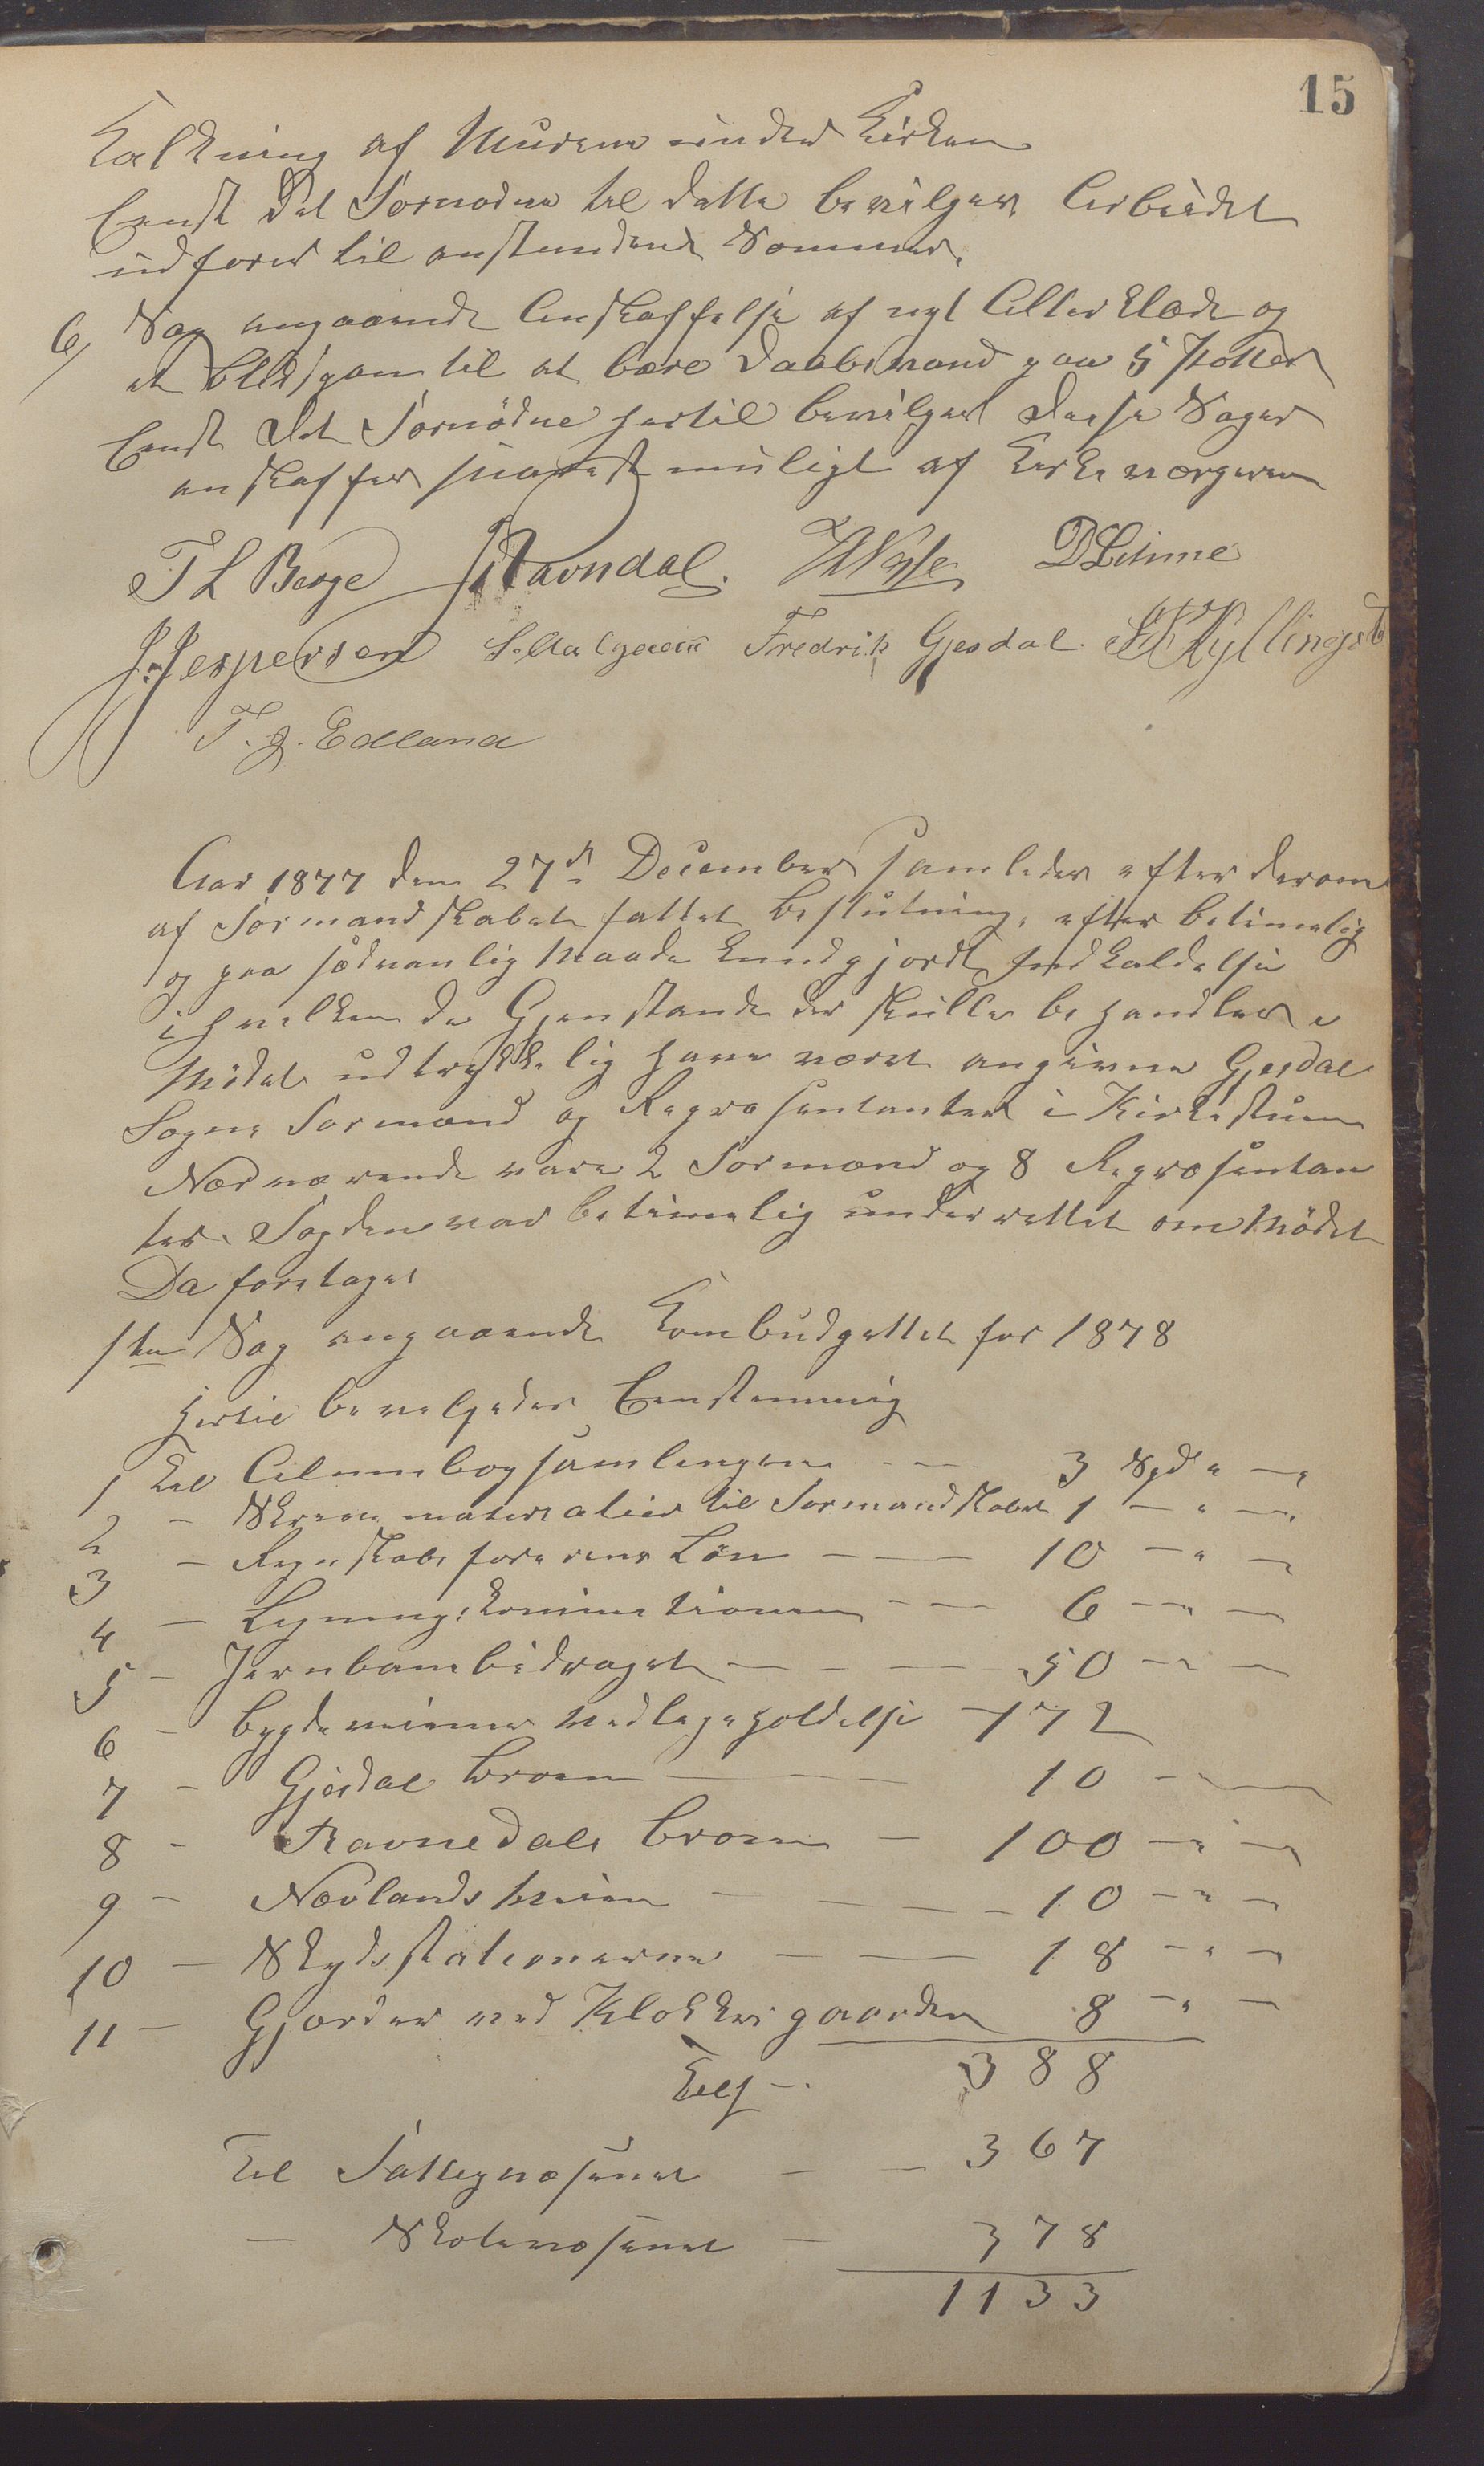 15
Kalkning af Murene under Kirken
Eenst Det Fornødne til dette bevilges, Arbeidet
udføres til anstundende Sommer.
6/ Sag angaaende Anskaffelse af nyt Alterklæde og
et til at bære Daabsvand paa 5 Potter
Eenst. Det Fornödne hertil bevilges disse Sager
anskaffes snarest muligt af Kirkeværgeren
T L Berge Ravndal. D Limme
J. Jespersen S. Aalgaard Fredrik Gjesdal. Kyllingst
T. J. Edland
Aar 1877 den 27de December samledes efter derom
af Formandskabet fattet Beslutning, efter betimelig
og paa sædvanlig Maade kundgjordt Indkaldelse
i hvilken de Gjenstande der skulle behandles i
Mödet udtrykkelig have været angivne Gjesdal
Sogns Formænd og Repræsentanter i Kirkestuen
Nærværende vare 2 Formænd og 8 Repræsentan
ter. Fogden var betimelig underrettet om Mödet
Da foretages
1ste Sag angaaende Kombudgettet for 1878
Hertil bevilgedes Eenstemmig
1 Til Almuebogsamlingen - - 3 Spd " - "
2 - Skrivematerialier til Formandskabet 1 - " - "
3 - Regnskabsförerens Lön - - - 10 - " -
4 - Ligningskommissionen - - - 6 - " -
5 - Jernbanebidraget - - - 50 - " -
6 - Bygdeveienes Vedligeholdelse - 172
7 - Gjesdal Broen - - - 10 - -
8 - Ravnedals Broen - 100 - " -
9 - Nævlandsveien - - - - 10 - " -
10 - Skydsstationerne - - - 18 - " -
11 - Gjærder ved Klokkergaarden 8 - " -
Tils -. 388
Til Fattigvæsenet - - 367
- Skolevæsenet - 378
1133